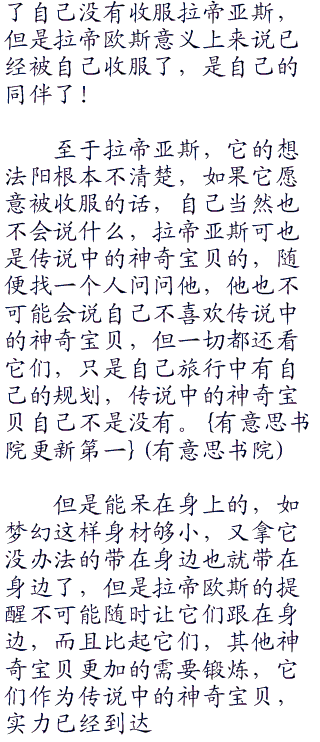 了自己没有收服拉帝亚斯，
但是拉帝欧斯意义上来说已
经被自己收服了，是自己的
同伴了！
至于拉帝亚斯，它的想
法阳根本不清楚，如果它愿
意被收服的话，自己当然也
不会说什么，拉帝亚斯可也
是传说中的神奇宝贝的，随
便找一个人问问他，他也不
可能会说自己不喜欢传说中
的神奇宝贝，但一切都还看
它们，只是自己旅行中有自
己的规划，传说中的神奇宝
贝自己不是没有。{有意思书
院更新第一}(有意思书院)
但是能呆在身上的，如
梦幻这样身材够小，又拿它
没办法的带在身边也就带在
身边了，但是拉帝欧斯的提
醒不可能随时让它们跟在身
边，而且比起它们，其他神
奇宝贝更加的需要锻炼，它
们作为传说中的神奇宝贝，
实力已经到达